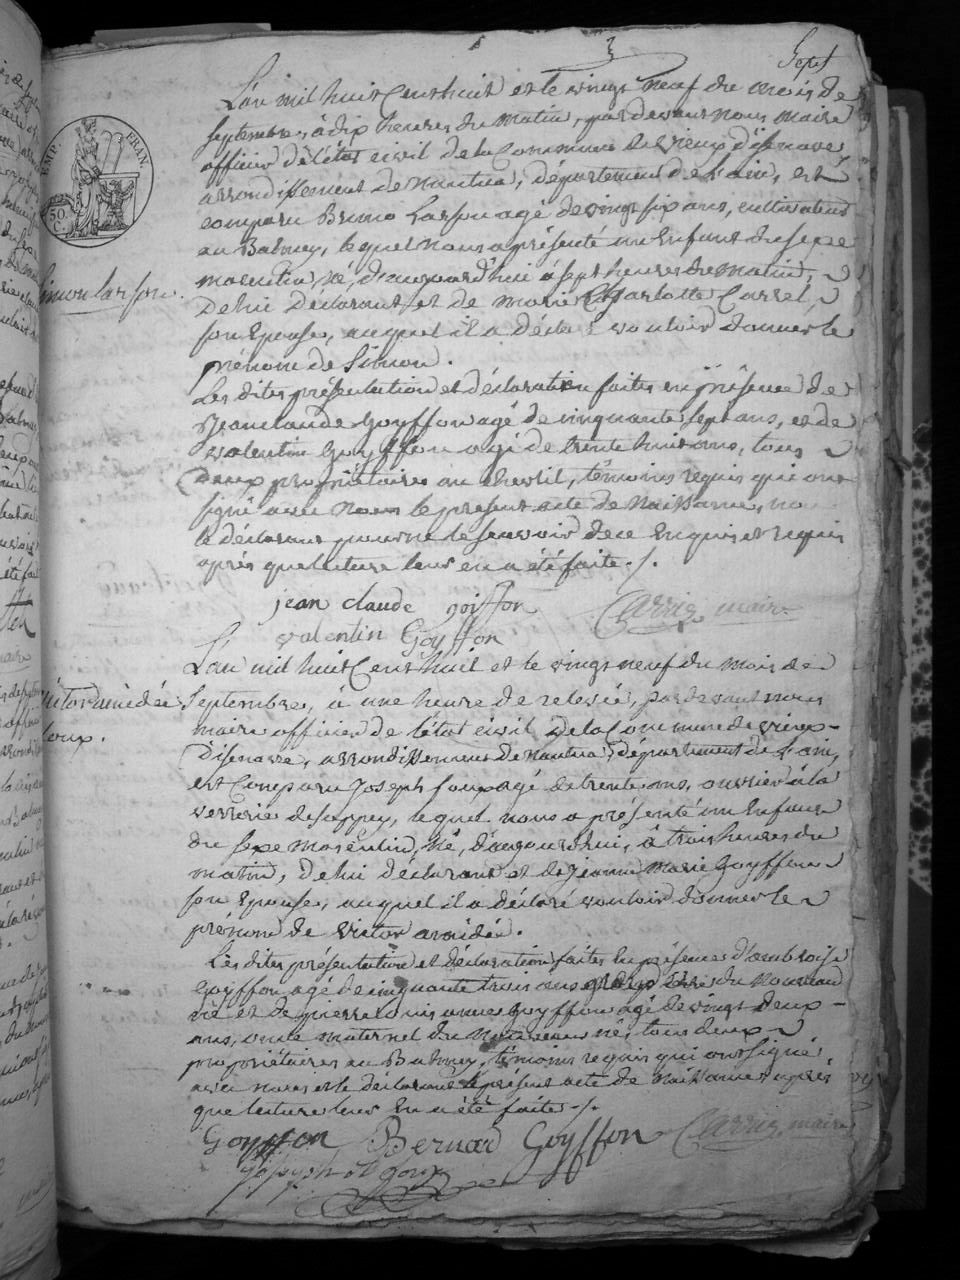 Sept
L'an mil huit cent huit et le vingt neuf du mois de
septembre, à dix heures du matin, par devant nous maire
officier de l'état civil de la Commune de Vieux d'isenave,
arrondissement de Nantua, département de l'ain, est
comparu Bruno Larson agé de vingt six ans, cultivateur
au Balmey, lequel nous a présenté un Enfant du sexe
masculin, né, d'aujourd'hui à sept heures du matin,
De lui Déclarant et de Marie Charlotte Carrel
son Epouse, auquel il a déclaré vouloir donner le
prénom de Simon.
Les dites présentation et déclaration faites en présence de
Jean Claude Goyffon agé de cinquante sept ans, et de
Valentin Goyffon agé de trente huit ans, tous
Deux propriétaires au Chevril, témoins requis qui ont
signé avec Nous le present acte de Naissance, no
le déclarant pour ne le scavoir de ce Enquis et requis
après que lecture leur en a été faite ./.
jean claude goiffon Carrig maire
valentin Goyffon
EMP. FRAN.
50. C.
Simon Larson.
L'an mil huit Cent huit et le vingt neuf du mois de
Septembre, à une heure de relevée, par devant nous
maire officier de l'état civil De la Commune de vieux-
D'isenave, arrondissement de Nantua, département de l'ain,
est Comparu Joseph Loup agé de trente ans, ouvrier à la
verrerie de suppey, lequel nous a présenté un Enfant
du sexe masculin, né, d'aujourd'hui, à trois heures du
matin, De lui déclarant et de Jeanne Marie Goyffon
son Epouse, auquel il a déclaré vouloir donner le
prénom de Victor amédée.
Les dites présentation et déclaration faites en présence d'ambroise
Goyffon agé de cinquante trois ans du Nouveau
né et de pierre Louis Goyffon agé de vingt deux
ans, oncle maternel du Nouveau né, tous deux
propriétaires au Balmey, témoins requis qui ont signé,
avec nous et le déclarant le présent acte de Naissance après
que lecture leur En a été faite ./.
Goyffon Bernard Goyffon Carrig maire
Victor amédée
Loup.